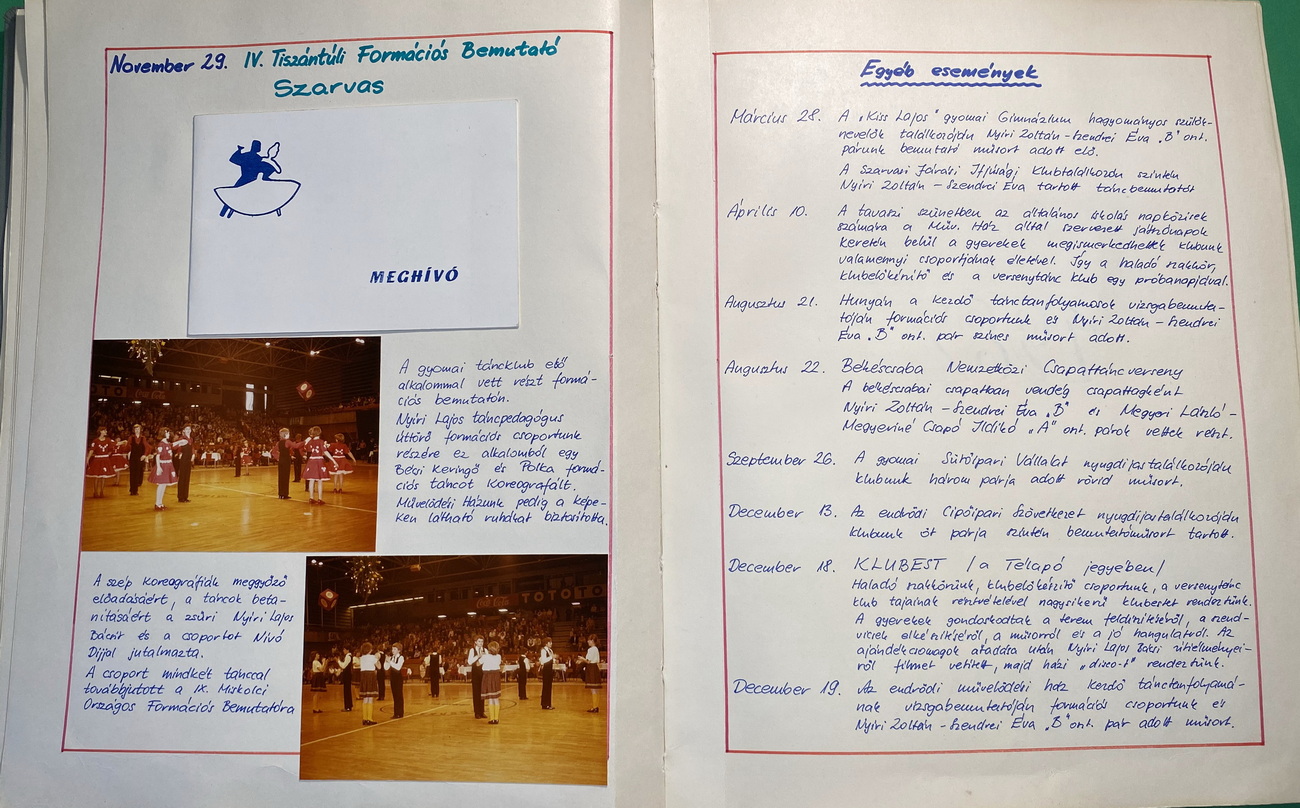 November 29. IV. Tiszántúli Formációs Bemutató
Szarvas
MEGHÍVÓ
A gyomai táncklub első
alkalommal vett részt formá-
ciós bemutatón.
Nyíri Lajos táncpedagógus
úttörő formációs csoportunk
részére ez alkalomból egy
Bécsi Keringő és Polka formá-
ciós táncot koreografált.
Művelődési Házunk pedig a képe-
ken látható ruhákat biztosította.
A szép koreográfiák meggyőző
előadásáért, a táncok beta-
nításáért a zsűri Nyíri Lajos
Bácsit és a csoportot Nívó
Díjjal jutalmazta.
A csoport mindkét tánccal
továbbjutott a IX. Miskolci
Országos Formációs Bemutatóra
TOTO
Egyéb események
Március 28. A „Kiss Lajos" gyomai Gimnázium hagyományos szülők-
nevelők találkozóján Nyíri Zoltán - Szendrei Éva „B" o.nt.
párunk bemutató műsort adott elő.
A Szarvasi Járási Ifjúsági Klubtalálkozón szintén
Nyíri Zoltán - Szendrei Éva tartott táncbemutatót
Április 10. A tavaszi szünetben az általános iskolás napközisek
számára a Műv. Ház által szervezett játszónapok
keretén belül a gyerekek megismerkedhettek klubunk
valamennyi csoportjának életével. Így a haladó szakkör,
klubelőkészítő és a versenytánc klub egy próbanapjával.
Augusztus 21. Hunyán a kezdő tánctanfolyamosok vizsgabemuta-
tóján formációs csoportunk és Nyíri Zoltán - Szendrei
Éva „B" o.nt. pár színes műsort adott.
Augusztus 22. Békéscsaba Nemzetközi Csapattáncverseny
A békéscsabai csapatban vendég csapattagként
Nyíri Zoltán - Szendrei Éva „B" és Megyeri László -
Megyeriné Csapó Ildikó „A" o.nt. párok vettek részt.
Szeptember 26. A gyomai Sütőipari Vállalat nyugdíjastalálkozóján
klubunk három párja adott rövid műsort.
December 13. Az endrődi Cipőipari Szövetkezet nyugdíjastalálkozóján
klubunk öt párja szintén bemutatóműsort tartott.
December 18. KLUBEST /a Télapó jegyében/
Haladó szakkörünk, klubelőkészítő csoportunk, a versenytánc
klub tagjainak részvételével nagysikerű klubestet rendeztünk.
A gyerekek gondoskodtak a terem feldíszítéséről, a szend-
vicsek elkészítéséről, a műsorról és a jó hangulatról. Az
ajándékcsomagok átadása után Nyíri Lajos bácsi útiélményei-
ről filmet vetített, majd házi „disco-t" rendeztünk.
December 19. Az endrődi művelődési ház kezdő tánctanfolyamá-
nak vizsgabemutatóján formációs csoportunk és
Nyíri Zoltán - Szendrei Éva „B" o.nt. pár adott műsort.